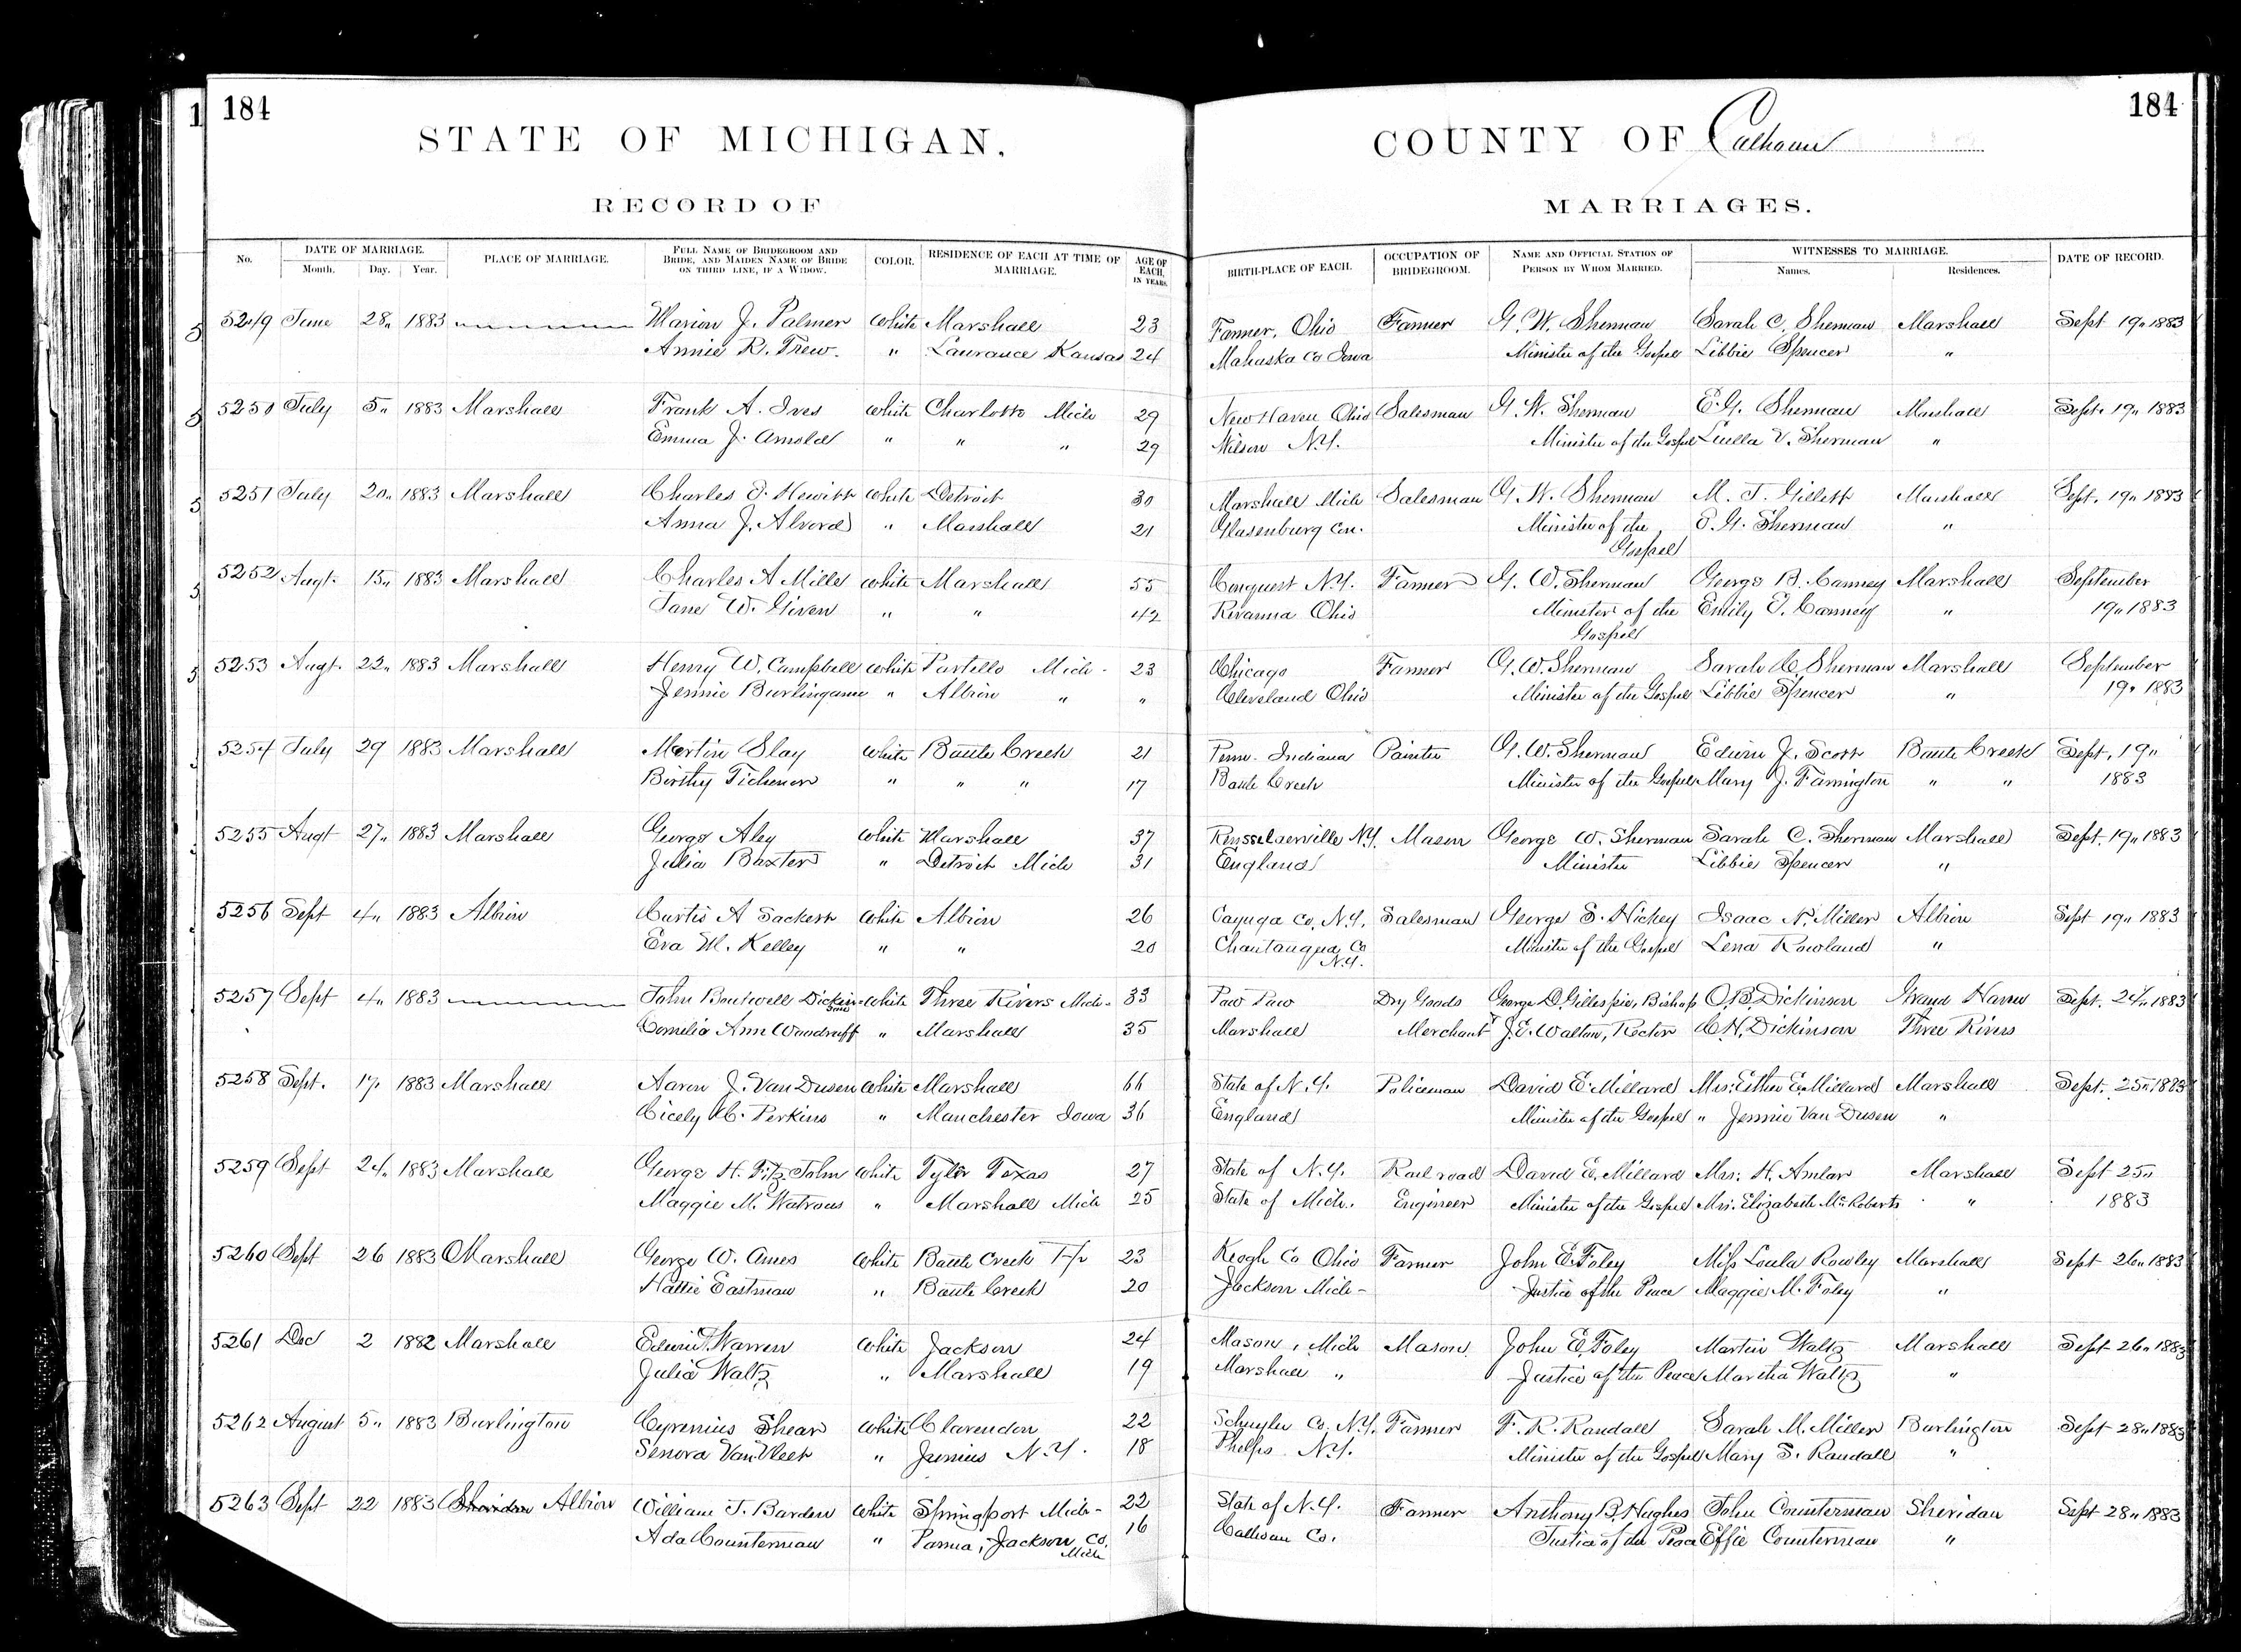 184
184
STATE OF MICHIGAN.
COUNTY OF Calhoun
RECORD OF
MARRIAGES.
No. DATE OF MARRIAGE. Month. Day. Year. PLACE OF MARRIAGE. FULL NAME OF BRIDEGROOM AND BRIDE, AND MAIDEN NAME OF BRIDE ON THIRD LINE, IF A WIDOW. COLOR. RESIDENCE OF EACH AT TIME OF MARRIAGE. AGE OF EACH, IN YEARS. BIRTH-PLACE OF EACH. OCCUPATION OF BRIDEGROOM. NAME AND OFFICIAL STATION OF PERSON BY WHOM MARRIED. WITNESSES TO MARRIAGE. Names. Residences. DATE OF RECORD.
5249 June 28 1883 Marion J. Palmer White Marshall 23 Farmer, Ohio Farmer G. W. Sherman Sarah C. Sherman Marshall Sept 19 1883
Annie R. Trew. " Laurance Kansas 24 Mahaska Co Iowa Minister of the Gospel Libbie Spencer "
5250 July 5 1883 Marshall Frank A. Ives White Charlotte Mich 29 New Haven Ohio Salesman G. W. Sherman E. G. Sherman Marshall Sept. 19 1883
Emma J. Arnold " " " 29 Wilson N.Y. Minister of the Gospel Luella V. Sherman "
5251 July 20 1883 Marshall Charles Hewitt White Detroit 30 Marshall Mich Salesman G. W. Sherman M. J. Gillett Marshall Sept. 19 1883
Anna J. Alvord " Marshall 21 Glasenburg Con. Minister of the Sherman "
Gospel
5252 Augt. 15 1883 Marshall Charles A Mills White Marshall 55 Conquest N.Y. Farmer G. W. Sherman George B. Canney Marshall September
Jane W. Given " " 42 Rivanna Ohio Minister of the Emily Canney " 19 1883
Gospel
5253 Augt. 22 1883 Marshall Henry W. Campbell White Partello Mich 23 Chicago Farmer G. W. Sherman Sarah C Sherman Marshall September
Jennie Burlingame " Albion " " Cleveland Ohio Minister of the Gospel Libbie Spencer " 19 1883
5254 July 29 1883 Marshall Martin Slay White Battle Creek 21 Indiana Painter G. W. Sherman Edwin J. Scott Battle Creek Sept. 19
Birthy Tichenor " " " 17 Battle Creek Minister of the Gospel Mary J. Farrington " " 1883
5255 Augt 27 1883 Marshall George Aley White Marshall 37 Rensselaerville N.Y. Mason George W. Sherman Sarah C. Sherman Marshall Sept. 19 1883
Julia Baxter " Detroit Mich 31 England Minister Libbie Spencer "
5256 Sept 4 1883 Albion Curtis A Sackett White Albion 26 Cayuga Co. N.Y. Salesman George S. Hickey Isaac N. Miller Albion Sept 19 1883
Eva M. Kelley " " 20 Chautauqua Co Minister of the Gospel Lena Rowland "
N.Y.
5257 Sept 4 1883 John Boutwell Dickinson White Three Rivers Mich 33 Paw Paw Dry Goods George D. Gillespie, Bishop O. B. Dickinson Grand Haven Sept. 24 1883
Cornelia Ann Woodruff " Marshall 35 Marshall Merchant J. E. Walton, Rector C. H. Dickinson Three Rivers
5258 Sept. 17 1883 Marshall Aaron J. Van Dusen White Marshall 66 State of N.Y. Policeman David E. Millard Mrs. Esther E. Millard Marshall Sept. 25 1883
Cicely C. Perkins " Manchester Iowa 36 England Minister of the Gospel " Jennie Van Dusen "
5259 Sept 24 1883 Marshall George H. Fitz John White Tyler Texas 27 State of N.Y. Rail road David E. Millard Mrs. H. Amlar Marshall Sept 25
Maggie M. Watrous " Marshall Mich 25 State of Mich. Engineer Minister of the Gospel Mrs. Elizabeth McRoberts " 1883
5260 Sept 26 1883 Marshall George W. Ames White Battle Creek Tp 23 Keogh Co Ohio Farmer John E. Foley Miss Loula Rowley Marshall Sept 26 1883
Hattie Eastman " Battle Creek 20 Jackson Mich Justice of the Peace Maggie M. Foley "
5261 Dec 2 1882 Marshall Edwin Warren White Jackson 24 Mason, Mich Mason John E. Foley Martin Waltz Marshall Sept 26 1883
Julia Waltz " Marshall 19 Marshall " Justice of the Peace Martha Waltz "
5262 August 5 1883 Burlington Cyrenius Shear White Clarendon 22 Schuyler Co. N.Y. Farmer F. R. Randall Sarah M. Miller Burlington Sept 28 1883
Senora Van Vleet " Junius N.Y. 18 Phelps N.Y. Minister of the Gospel Mary S. Randall "
5263 Sept 22 1883 Sheridan Albion William T. Barden White Springport Mich 22 State of N.Y. Farmer Anthony B. Hughes John Counterman Sheridan Sept 28 1883
Ada Counterman " Parma, Jackson Co. 16 Calhoun Co. Justice of the Peace Effie Counterman "
Mich